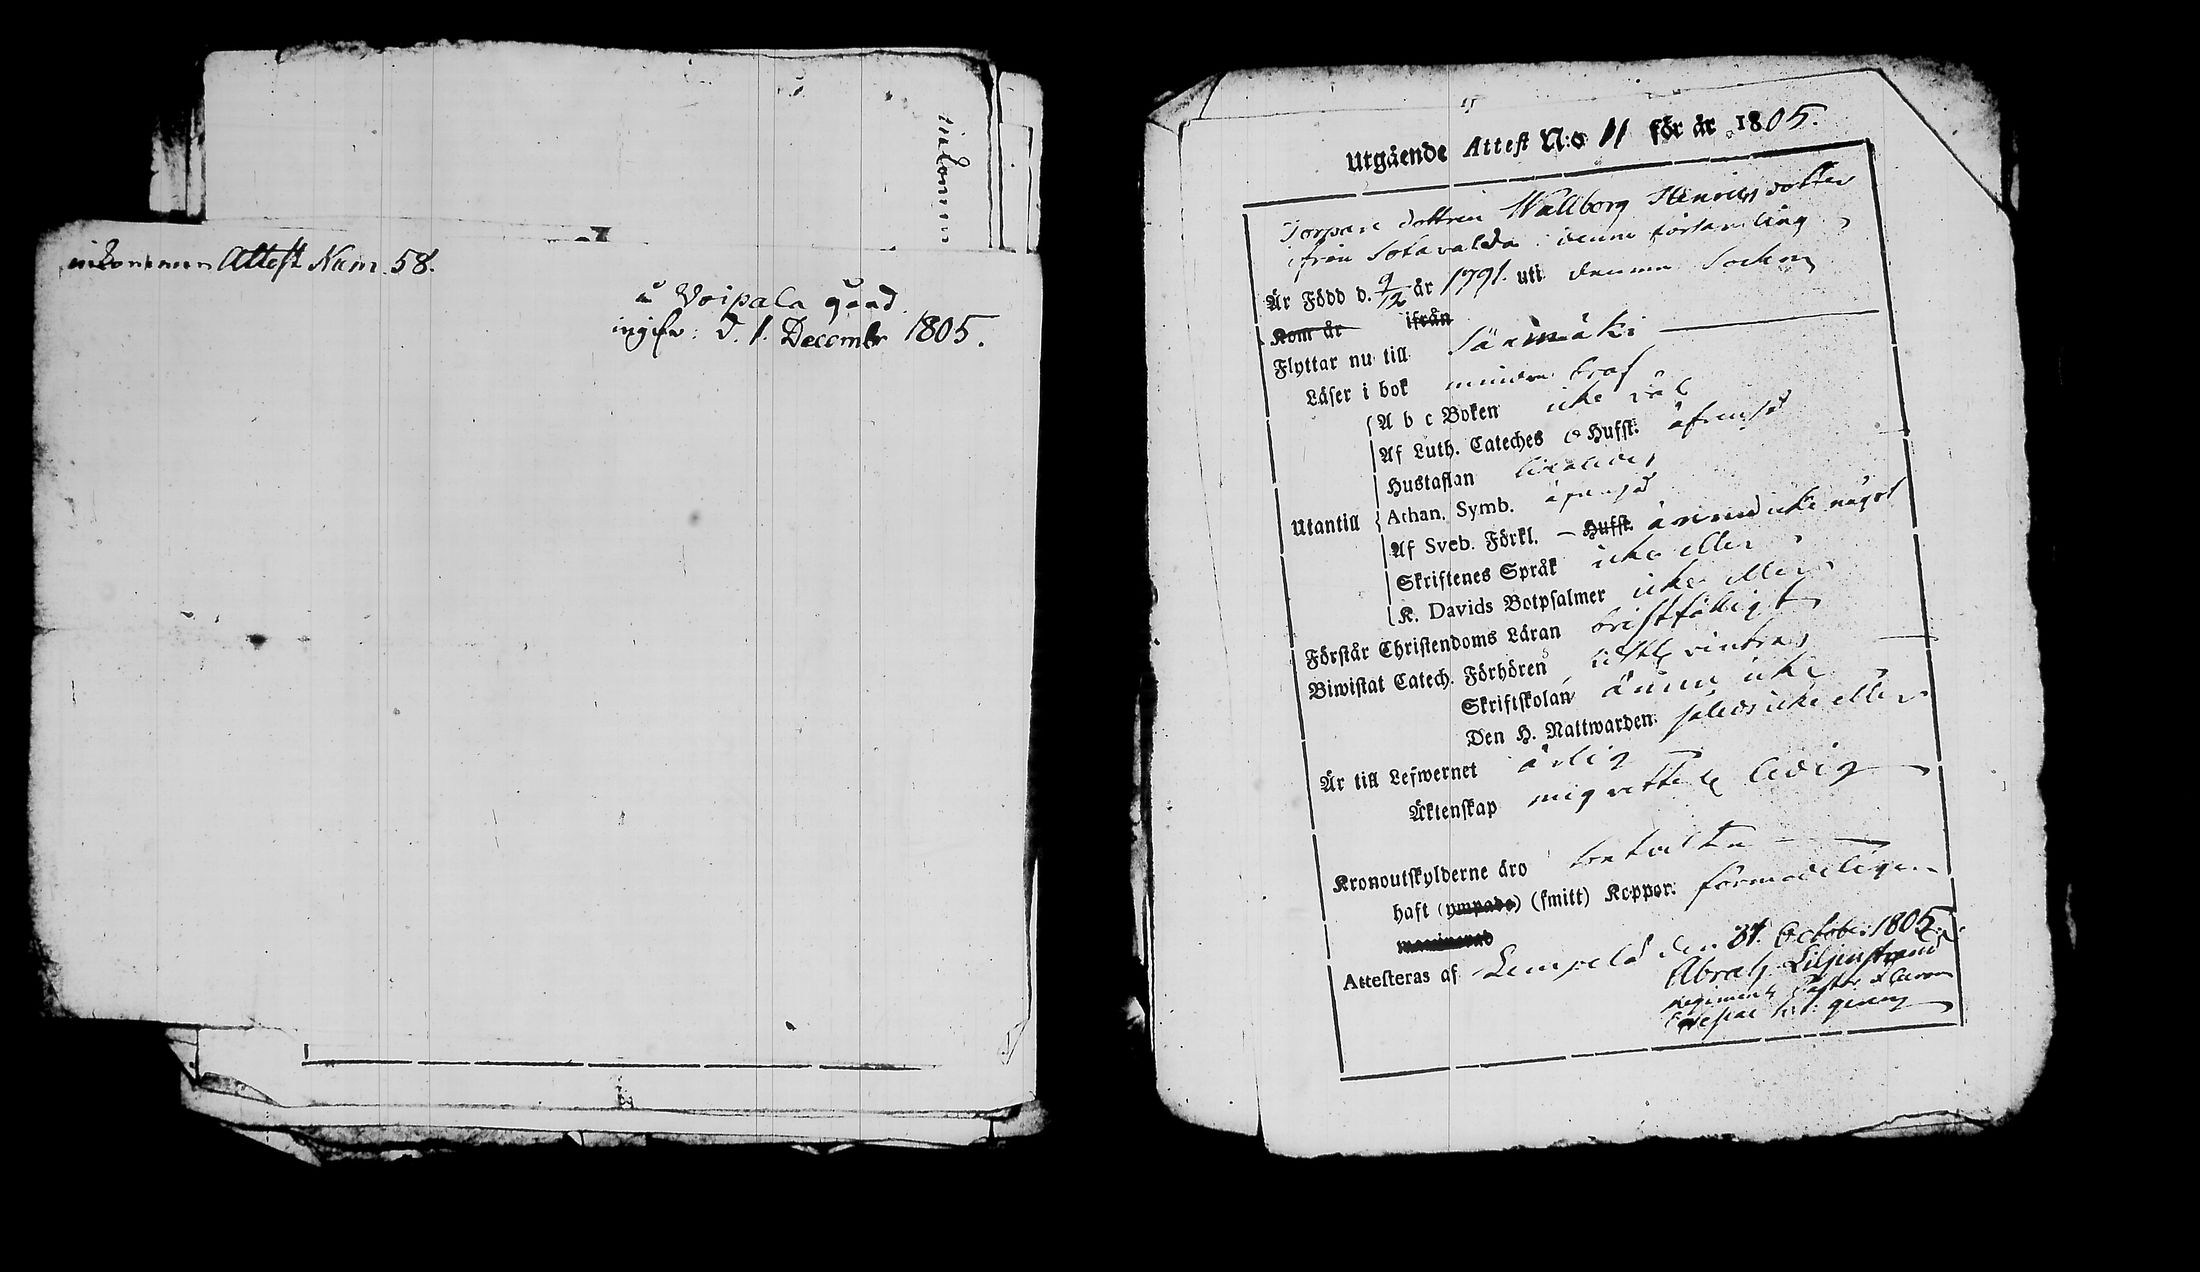 inkommen
inkommen Attest Num. 58.
å Voipala gård
d. 1. Decembr 1805.
Utgående Attest N:o 11 för år 1805.
Torpare dottren Wallborg Henricsdotter
ifrån Sotavalda i denna församling
Är Född d. 9/12 år 1791. uti denna Sockn
Kom år ifrån
Flyttar nu till Säxmäki
Läser i bok mindre braf
Utantill
A b c Boken icke väl
Af Luth. Cateches o Hufst. äfvenså
Hustaflan
Athan. Symb. äfvenså
Af Sveb. Förkl. – Hufst. ännu icke något
Skriftenes Språk icke eller
K. Davids Botpsalmer icke eller
Förstår Christendoms Läran bristfälligt
Biwistat Catech. Förhören
Skriftskolan ännu icke
Den H. Nattwarden: således icke eller
Är till Lefwernet ärlig
Äktenskap mig vetterl. ledig
Kronoutskylderne äro
haft (ympade) (smitt) Koppor: förmodeligen
Attesteras af Lempelä den 31. October 1805.
Abrah. Liljestrand
Regiments Pastor